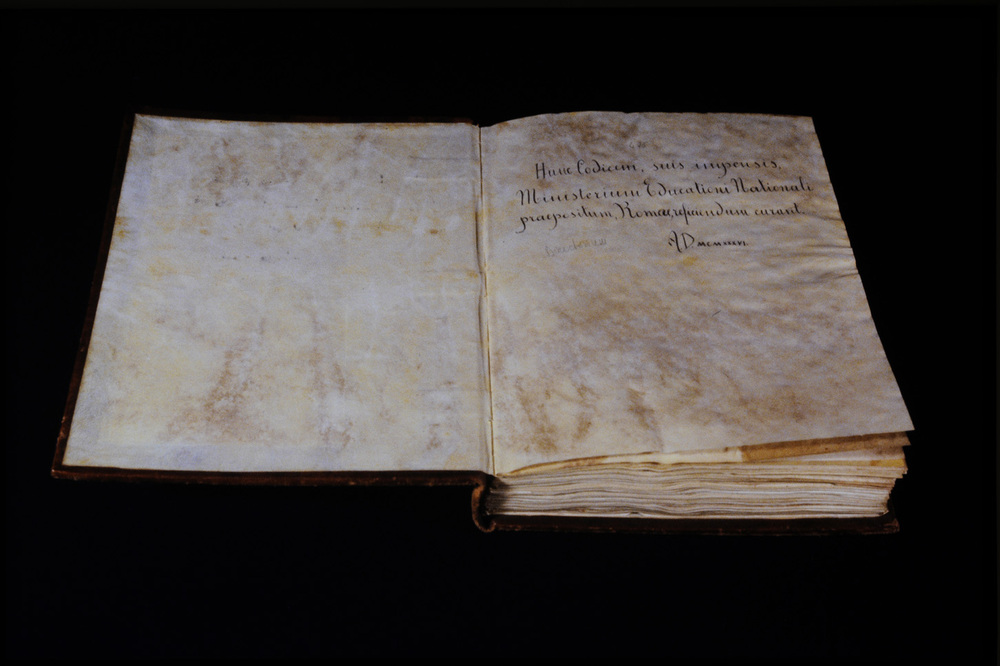 Hunc Codicem, suis impensis,
Ministerium Educationi Nationali
praepositum, Romae, reficiendum curavit.
AD